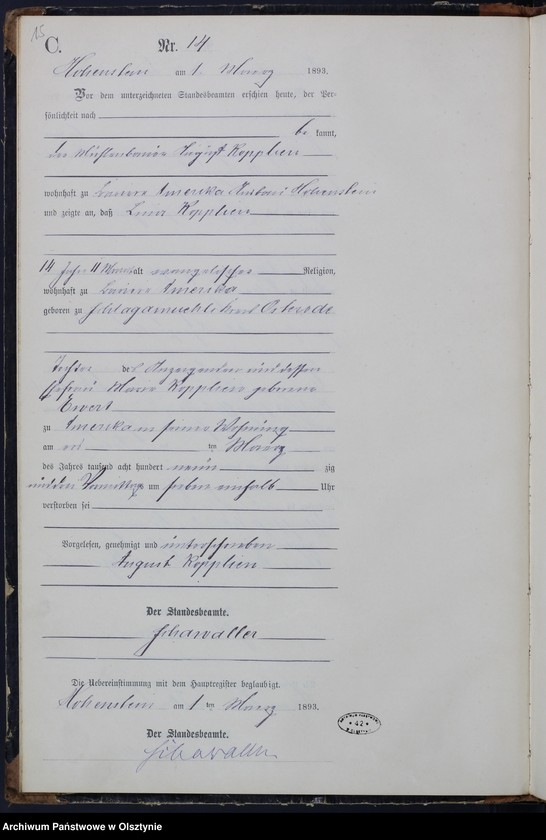 15
C.
Nr. 14
Hohenstein am 1. Maerz 1893.
Vor dem unterzeichneten Standesbeamten erschien heute, der Per-
sönlichkeit nach
be kannt,
der Mühlenbauer August Kopplien
wohnhaft zu Amerika Hohenstein
und zeigte an, daß Kopplien
14 Jahre 11 Monat alt evangelischer Religion,
wohnhaft zu Amerika
geboren zu Osterode
Tochter des Anzeigenden und dessen
Ehefrau Maria Kopplien geborene
Ewert
zu Amerika in seiner Wohnung
am ten Maerz
des Jahres tausend acht hundert neun zig
und drei Vormittags um sieben einhalb Uhr
verstorben sei
Vorgelesen, genehmigt und unterschrieben
August Kopplien
Der Standesbeamte.
Schawaller
Die Uebereinstimmung mit dem Hauptregister beglaubigt.
Hohenstein am 1 ten Maerz 1893.
Der Standesbeamte.
Schawaller
42
Archiwum Państwowe w Olsztynie